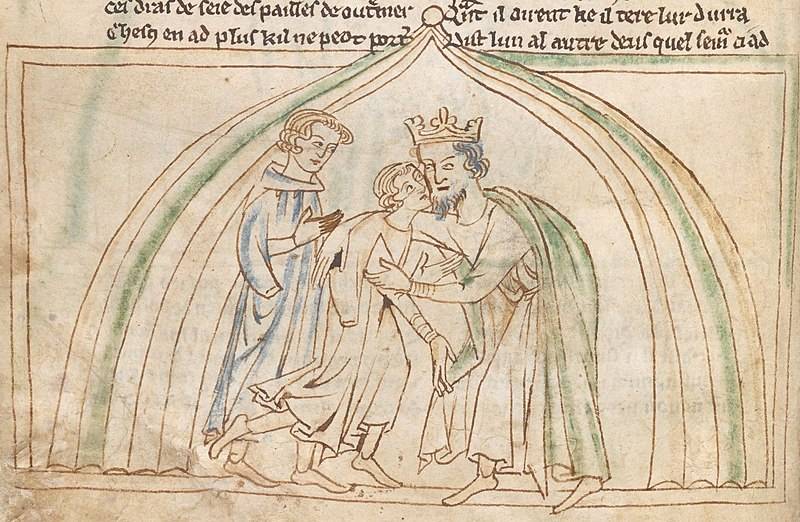 ces dras de seie des pailles de outmer
Chesq en ad plus kil ne peot port
Qnt il oirent ke il tere lur durra
Dist lun al autre deus quel seinr ci ad